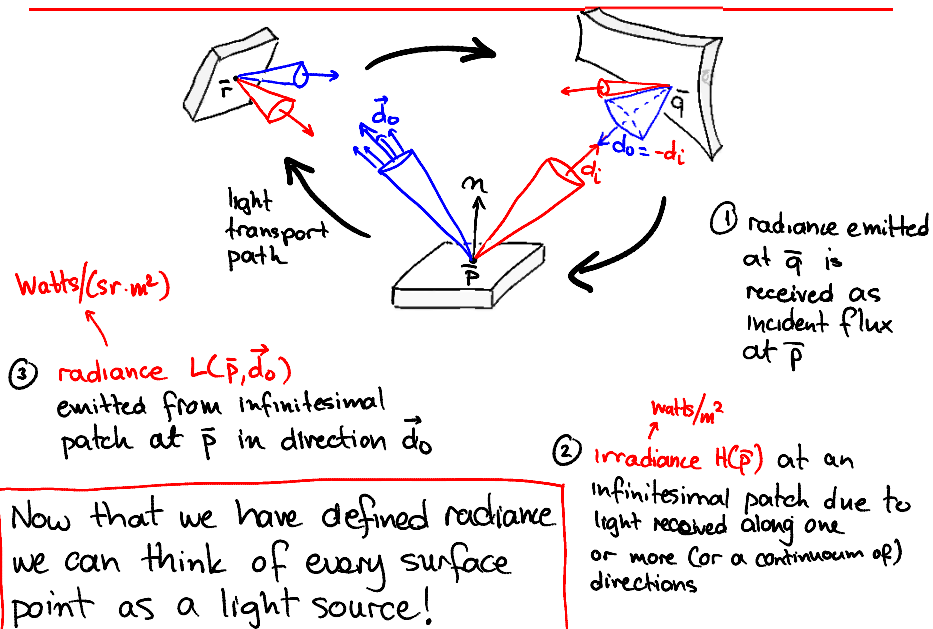 r̄
d⃗o
q̄
do = -di
di
n
p̄
light
transport
path
① radiance emitted
at q̄ is
received as
incident flux
at p̄
Watts/(sr·m²)
③ radiance L(p̄,d⃗o)
emitted from infinitesimal
patch at p̄ in direction d⃗o
watts/m²
② irradiance H(p̄) at an
infinitesimal patch due to
light received along one
or more (or a continuum of)
directions
Now that we have defined radiance
we can think of every surface
point as a light source!